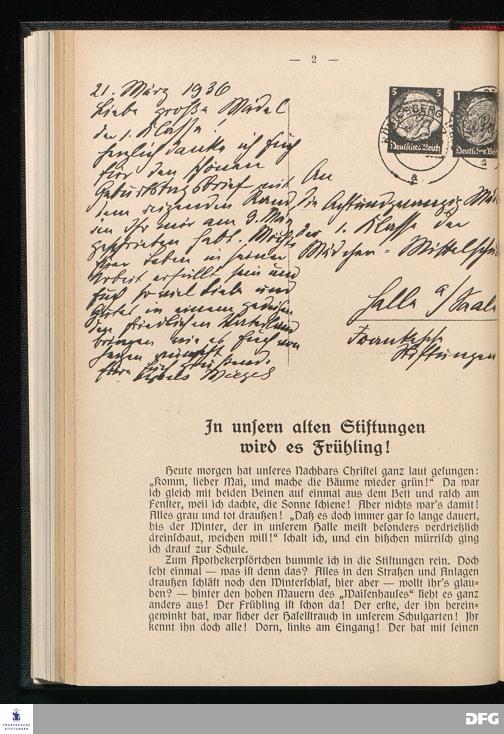 — 2 —
21. März 1936
Liebe große Mädel
der 1. Klasse!
Herzlich danke ich Euch
für den schönen
Geburtstagsbrief mit
dem reizenden Rand,
den Ihr mir am 9. März
geschrieben habt. Möchte
Euer Leben in seiner
Arbeit erfüllt sein und
Euch so viel Liebe und
Gutes in einem
friedlichen Vaterland
bringen wie es Euch von
Herzen wünscht
Agnes Miegel
5 5
Deutsches Reich
1
Deutsches Re
a
An
die Mäd
der 1. Klasse der
Mädchen-Mittelschule
Halle a/Saale
Franckesche
Stiftungen
In unsern alten Stiftungen
wird es Frühling!
Heute morgen hat unseres Nachbars Christel ganz laut gesungen:
„Komm, lieber Mai, und mache die Bäume wieder grün!“ Da war
ich gleich mit beiden Beinen auf einmal aus dem Bett und rasch am
Fenster, weil ich dachte, die Sonne schiene! Aber nichts war's damit!
Alles grau und tot draußen! „Daß es doch immer gar so lange dauert,
bis der Winter, der in unserem Halle meist besonders verdrießlich
dreinschaut, weichen will!“ schalt ich, und ein bißchen mürrisch ging
ich drauf zur Schule.
Zum Apothekerpförtchen bummle ich in die Stiftungen rein. Doch
seht einmal — was ist denn das? Alles in den Straßen und Anlagen
draußen schläft noch den Winterschlaf, hier aber — wollt ihr's glau-
ben? — hinter den hohen Mauern des „Waisenhauses“ sieht es ganz
anders aus! Der Frühling ist schon da! Der erste, der ihn herein-
gewinkt hat, war sicher der Haselstrauch in unserem Schulgarten! Ihr
kennt ihn doch alle! Vorn, links am Eingang! Der hat mit seinen
FRANCKESCHE
STIFTUNGEN
DFG